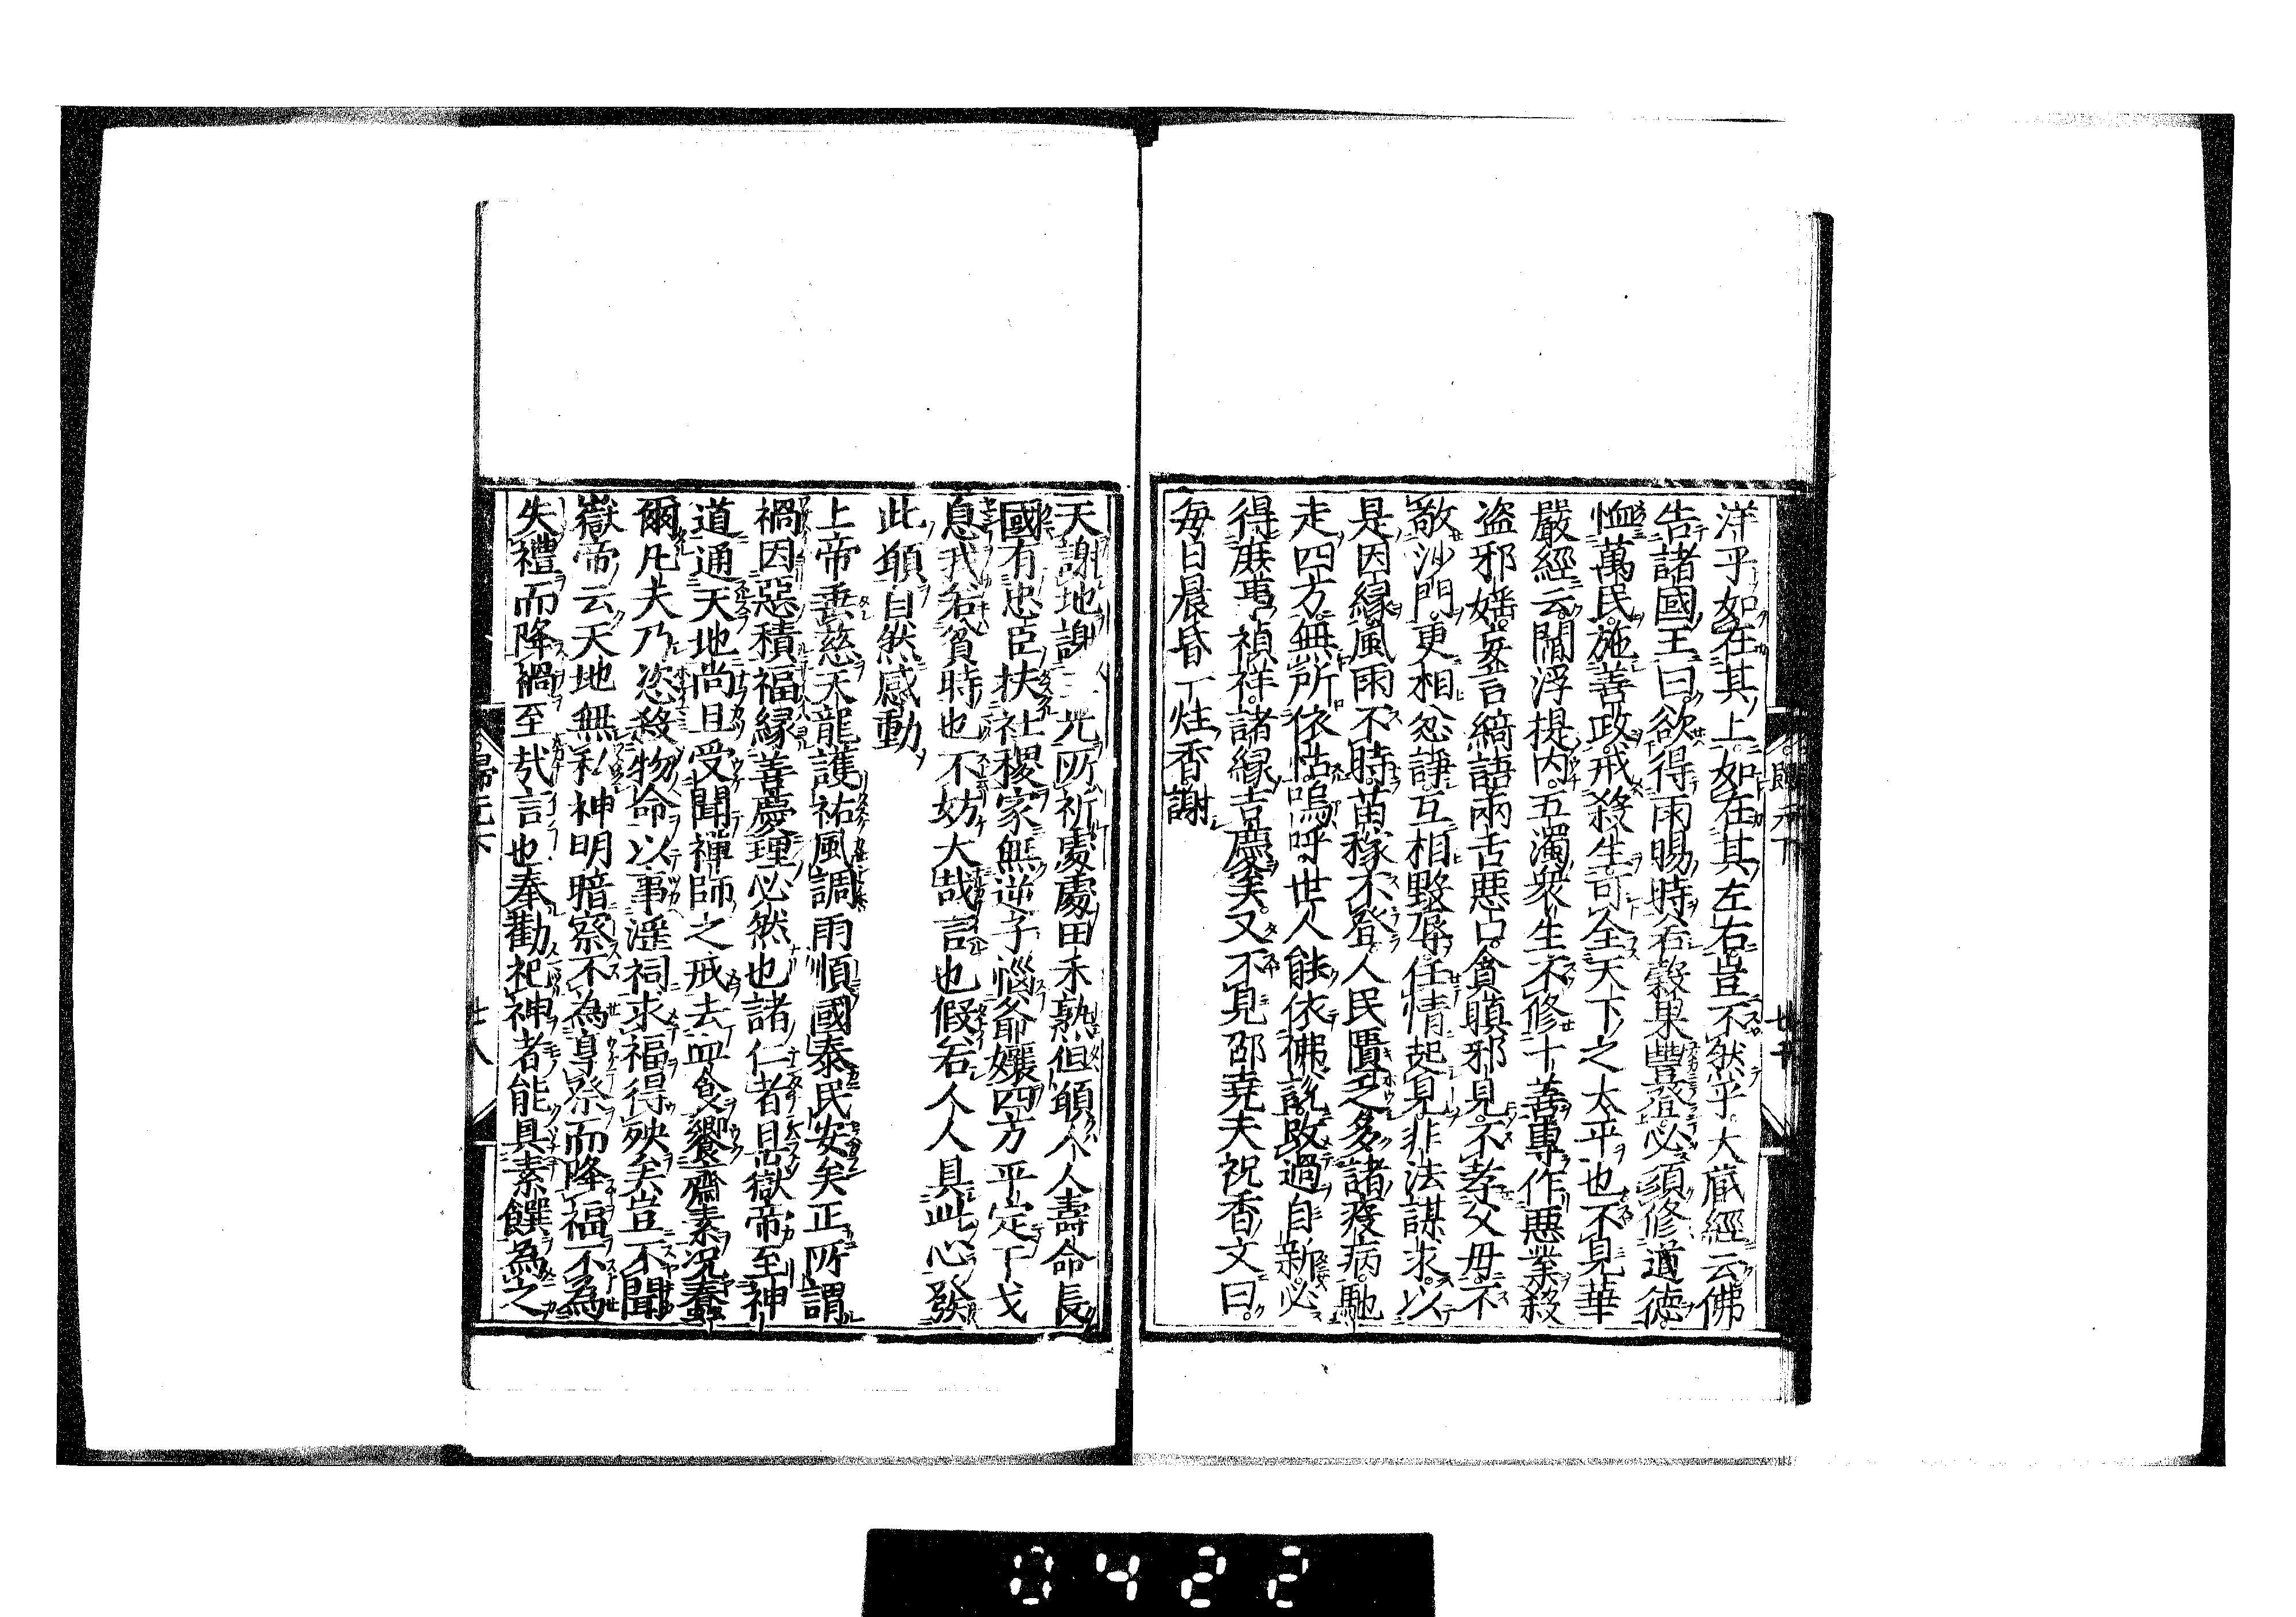 洋乎如在其上如在其左右豈不然乎大藏經云佛
告諸國王曰欲得雨暘時若穀果豐登必須修道德
恤萬民施善政戒殺生可全天下之太平也不見華
嚴經云閻浮提內五濁衆生不修十善專作惡業殺
盜邪婬妄言綺語兩舌惡口貪瞋邪見不孝父母不
敬沙門更相忿諍互相毀辱任情起見非法謀求以
是因緣風雨不時苗稼不登人民匱乏多諸疫病馳
走四方無所依怙嗚呼世人能依佛說改過自新必
得厥萬禎祥諸緣吉慶矣又不見邵堯夫祝香文曰
每日晨昏一炷香謝
天謝地謝三光所祈處處田禾熟但願人人壽命長
國有忠臣扶社稷家無逆子惱爺孃四方平定干戈
息我若貧時也不妨大哉言也假若人人具此心發
此願自然感動
上帝垂慈天龍護祐風調雨順國泰民安矣正所謂
禍因惡積福緣善慶理必然也諸仁者昆嶽帝至神
道通天地尚且受聞禪師之戒去血食饗齋素況蠢
爾凡夫乃恣殺物命以事淫祠求福得殃矣豈不聞
嶽帝云天地無私神明暗察不為享祭而降福不為
失禮而降禍至哉言也奉勸祀神者能具素饌為之
歸元下
廿八
0422